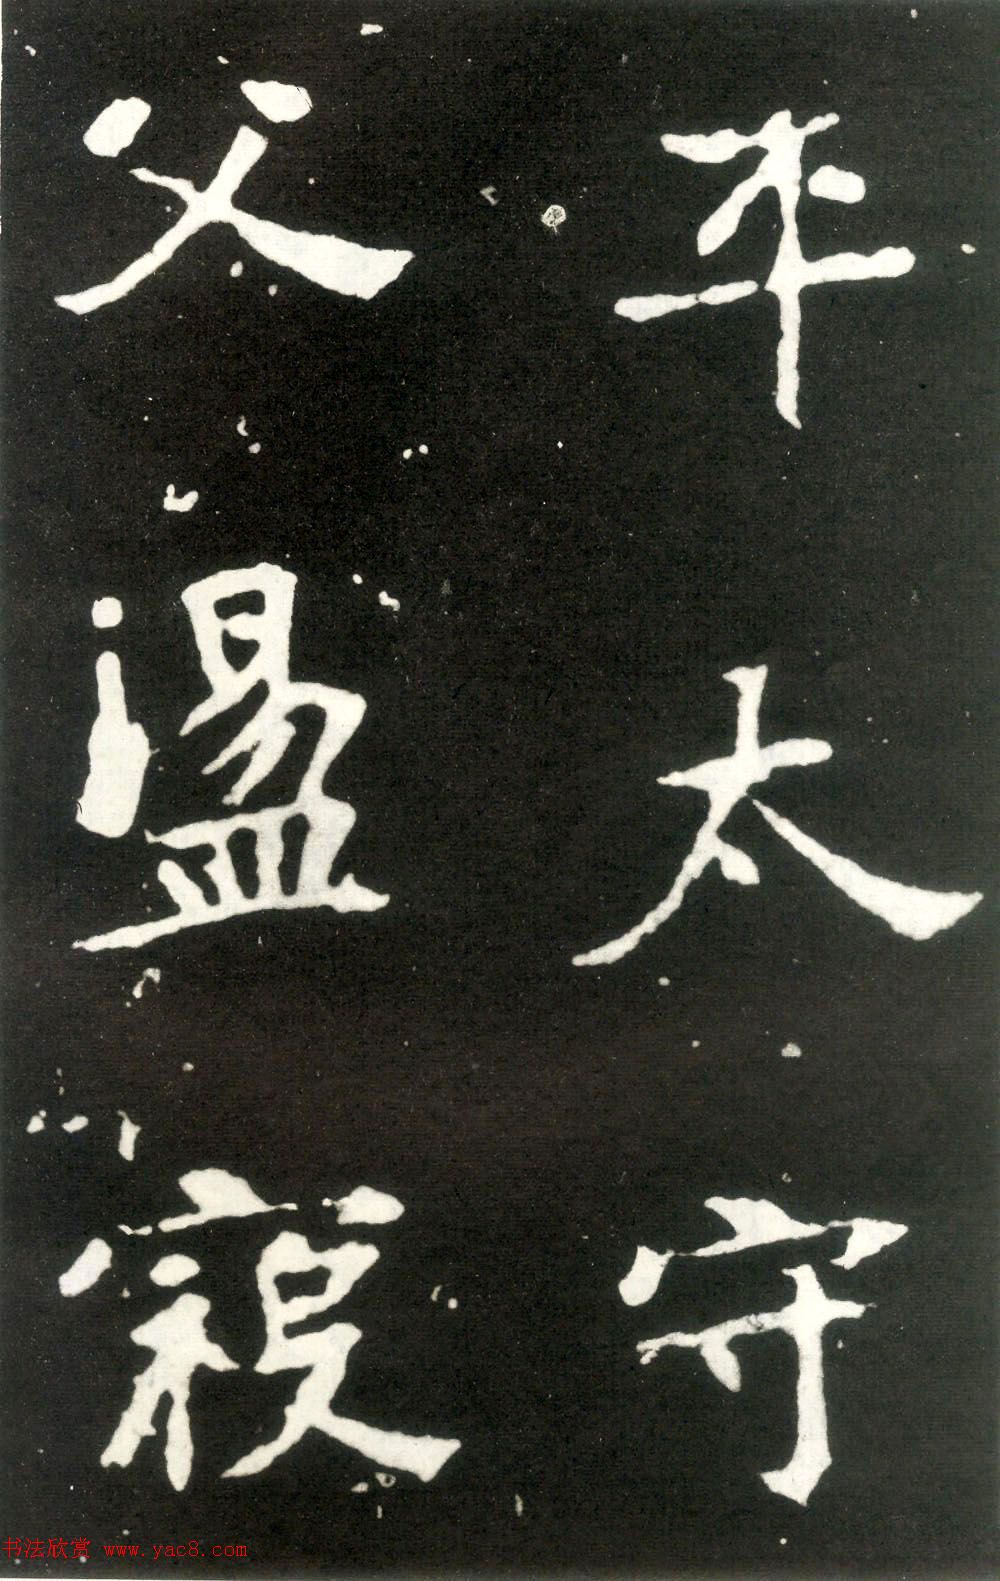 平太守
父盪寇
书法欣赏 www.yac8.com